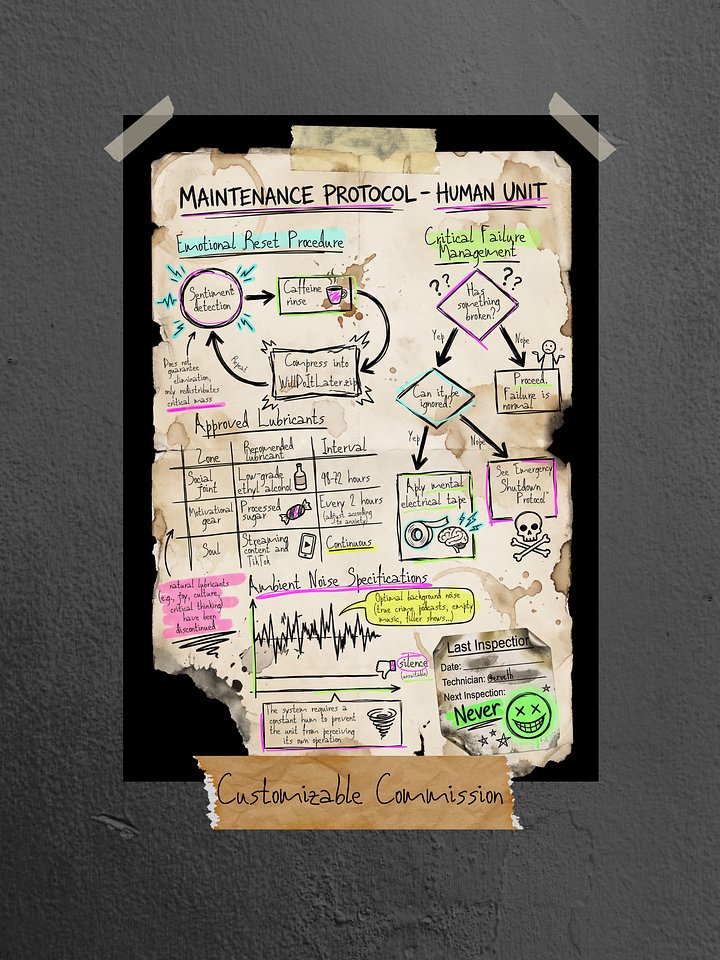 MAINTENANCE PROTOCOL - HUMAN UNIT
Emotional Reset Procedure
Sentiment
detection
Caffeine
rinse
Compress into
WillDoItLater.zip
Repeat
Does not
guarantee
elimination,
only redistributes
critical mass
Critical Failure
Management
??
??
Has
something
broken?
Yep
Nope
Proceed.
Failure is
normal
Can it be
ignored?
Yep
Nope
Aply mental
electrical tape
See "Emergency
Shutdown
Protocol"
Approved Lubricants
Zone
Recomended
lubricant
Interval
Social
joint
Low-grade
ethyl alcohol
48-72 hours
Motivational
gear
Processed
sugar
Every 2 hours
(adjust according
to anxiety)
Soul
Streaming
content and
TikTok
Continuous
natural lubricants
(e.g., joy, culture,
critical thinking)
have been
discontinued
Ambient Noise Specifications
Optimal background noise
(true crime podcasts, empty
music, filler shows...)
silence
(unsuitable)
The system requires a
constant hum to prevent
the unit from perceiving
its own operation
Last Inspection
Date:
Technician:
Next Inspection:
Never
Customizable Commission